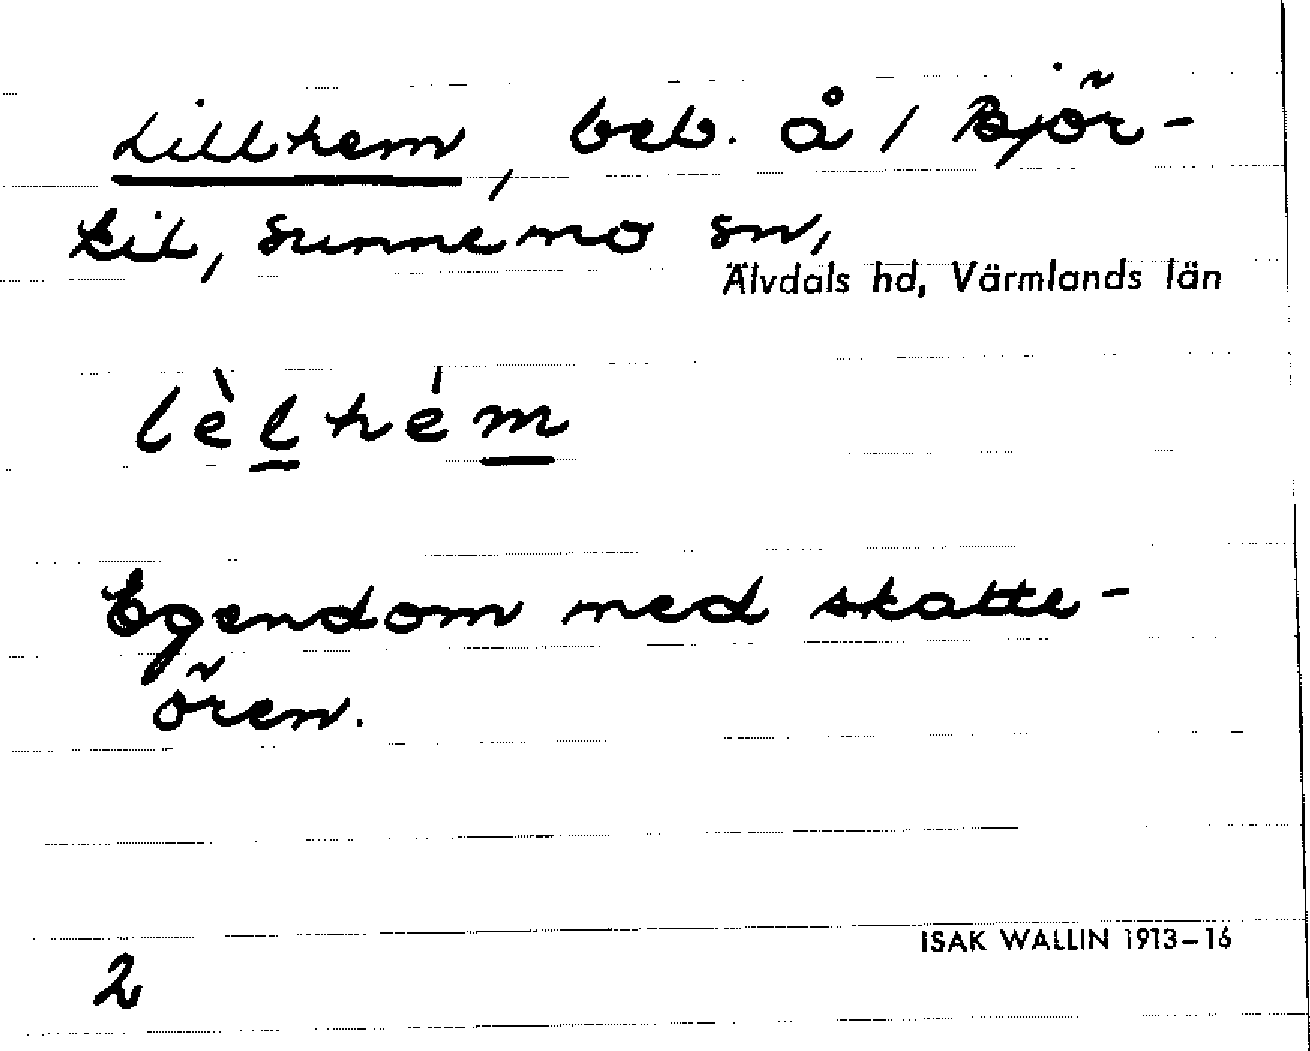 Lillhem, beb. å / Björ-
kil, Sunnemo sn,
Älvdals hd, Värmlands län
lèlhém
Egendom med skatte-
ören.
ISAK WALLIN 1913-16
2